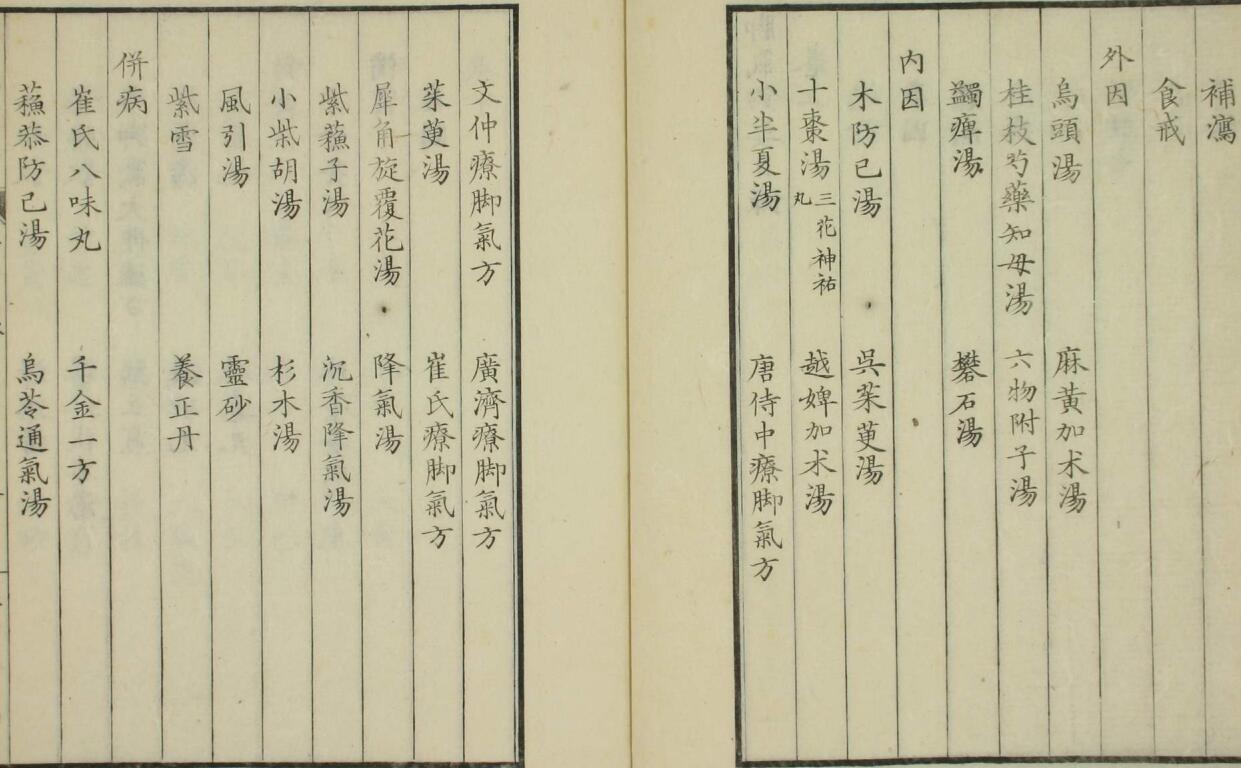 補瀉
食戒
外因
烏頭湯 麻黃加朮湯
桂枝芍藥知母湯 六物附子湯
蠲痺湯 礬石湯
内因
木防已湯 吳茱萸湯
十棗湯 三花神祐丸 越婢加术湯
小半夏湯 唐侍中療脚氣方
文仲療脚氣方 廣濟療脚氣方
茱萸湯 崔氏療脚氣方
犀角旋覆花湯 降氣湯
紫蘓子湯 沉香降氣湯
小柴胡湯 杉木湯
風引湯 靈砂
紫雪 養正丹
併病
崔氏八味丸 千金一方
蘓恭防已湯 烏苓通氣湯